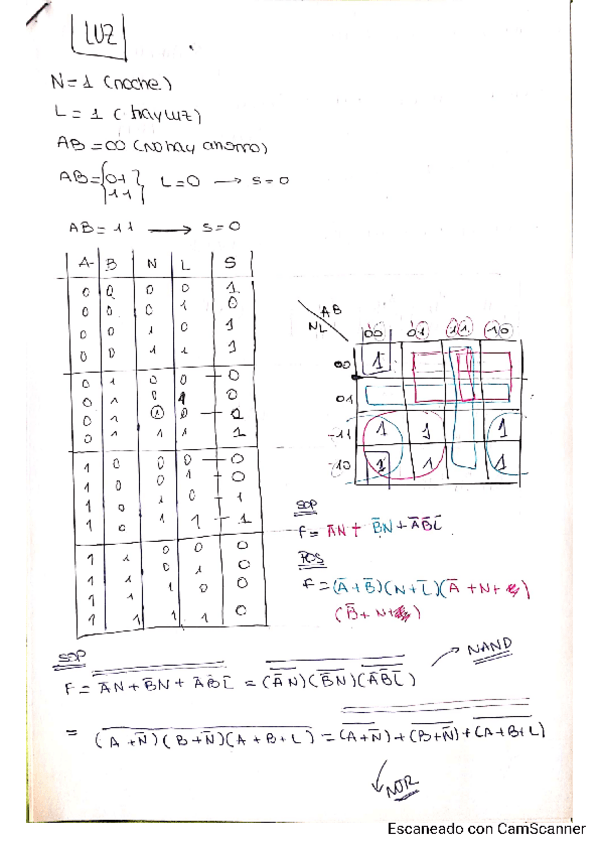 LUZ
N=1 (noche)
L=1 (hay luz)
AB=00 (No hay ahorro)
AB={01 11} L=0 → S=0
AB=11 → S=0
A B N L S
0 0 0 0 1
0 0 0 1 0
0 0 1 0 1
0 0 1 1 1
0 1 0 0 0
0 1 0 1 0
0 1 1 0
0 1 1 1 1
1 0 0 0 0
1 0 0 1 0
1 0 1 0 1
1 0 1 1 1
1 1 0 0 0
1 1 0 1 0
1 1 1 0 0
1 1 1 1 0
AB
NL
00 01 11 10
00 1
01
11 1 1 1
10 1 1 1
SOP
F= A̅N + B̅N + A̅B̅L̅
POS
F=(A̅+B̅)(N+L̅)(A̅+N+
(B̅+N+
SOP
F= A̅N + B̅N + A̅B̅L̅ = (A̅N)(B̅N)(A̅B̅L̅)
NAND
= (A+N̅)(B+N̅)(A+B+L) = (A+N̅)+(B+N̅)+(A+B+L)
NOR
Escaneado con CamScanner